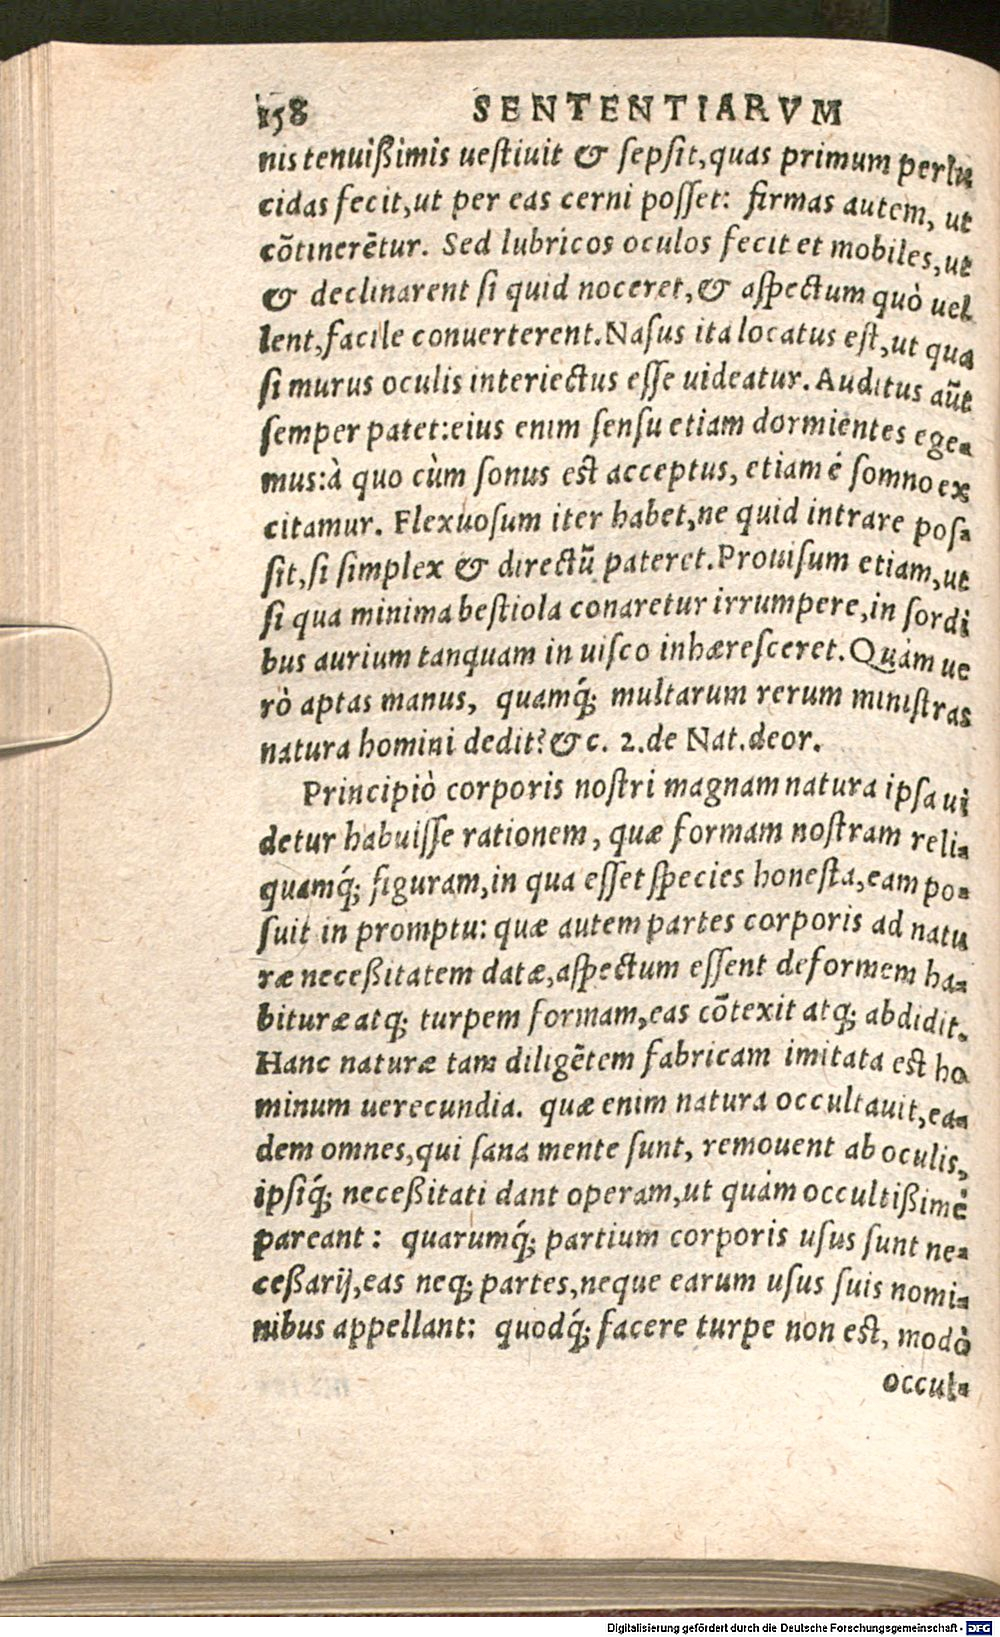 158 SENTENTIARVM
nis tenuißimis uestiuit & sepsit, quas primum perlu
cidas fecit, ut per eas cerni posset: firmas autem, ut
cõtinerẽtur. Sed lubricos oculos fecit et mobiles, ut
& declinarent si quid noceret, & aspectum quò uel
lent, facile conuerterent. Nasus ita locatus est, ut qua
si murus oculis interiectus esse uideatur. Auditus aũt
semper patet: eius enim sensu etiam dormientes ege-
mus: à quo cùm sonus est acceptus, etiam é somno ex
citamur. Flexuosum iter habet, ne quid intrare pos-
sit, si simplex & directũ pateret. Prouisum etiam, ut
si qua minima bestiola conaretur irrumpere, in sordi
bus aurium tanquam in uisco inhæresceret. Quàm ue
rò aptas manus, quamq́; multarum rerum ministras
natura homini dedit? & c. 2. de Nat. deor.
Principiò corporis nostri magnam natura ipsa ui
detur habuisse rationem, quæ formam nostram reli-
quamq́; figuram, in qua esset species honesta, eam po-
suit in promptu: quæ autem partes corporis ad natu
ræ neceßitatem datæ, aspectum essent deformem ha-
bituræ atq; turpem formam, eas cõtexit atq; abdidit.
Hanc naturæ tam diligẽtem fabricam imitata est ho
minum uerecundia. quæ enim natura occultauit, ea-
dem omnes, qui sana mente sunt, remouent ab oculis,
ipsiq́; neceßitati dant operam, ut quàm occultißimè
pareant: quarumq́; partium corporis usus sunt ne-
ceßarij, eas neq; partes, neque earum usus suis nomi-
nibus appellant: quodq́; facere turpe non est, modò
occul-
Digitalisierung gefördert durch die Deutsche Forschungsgemeinschaft - DFG